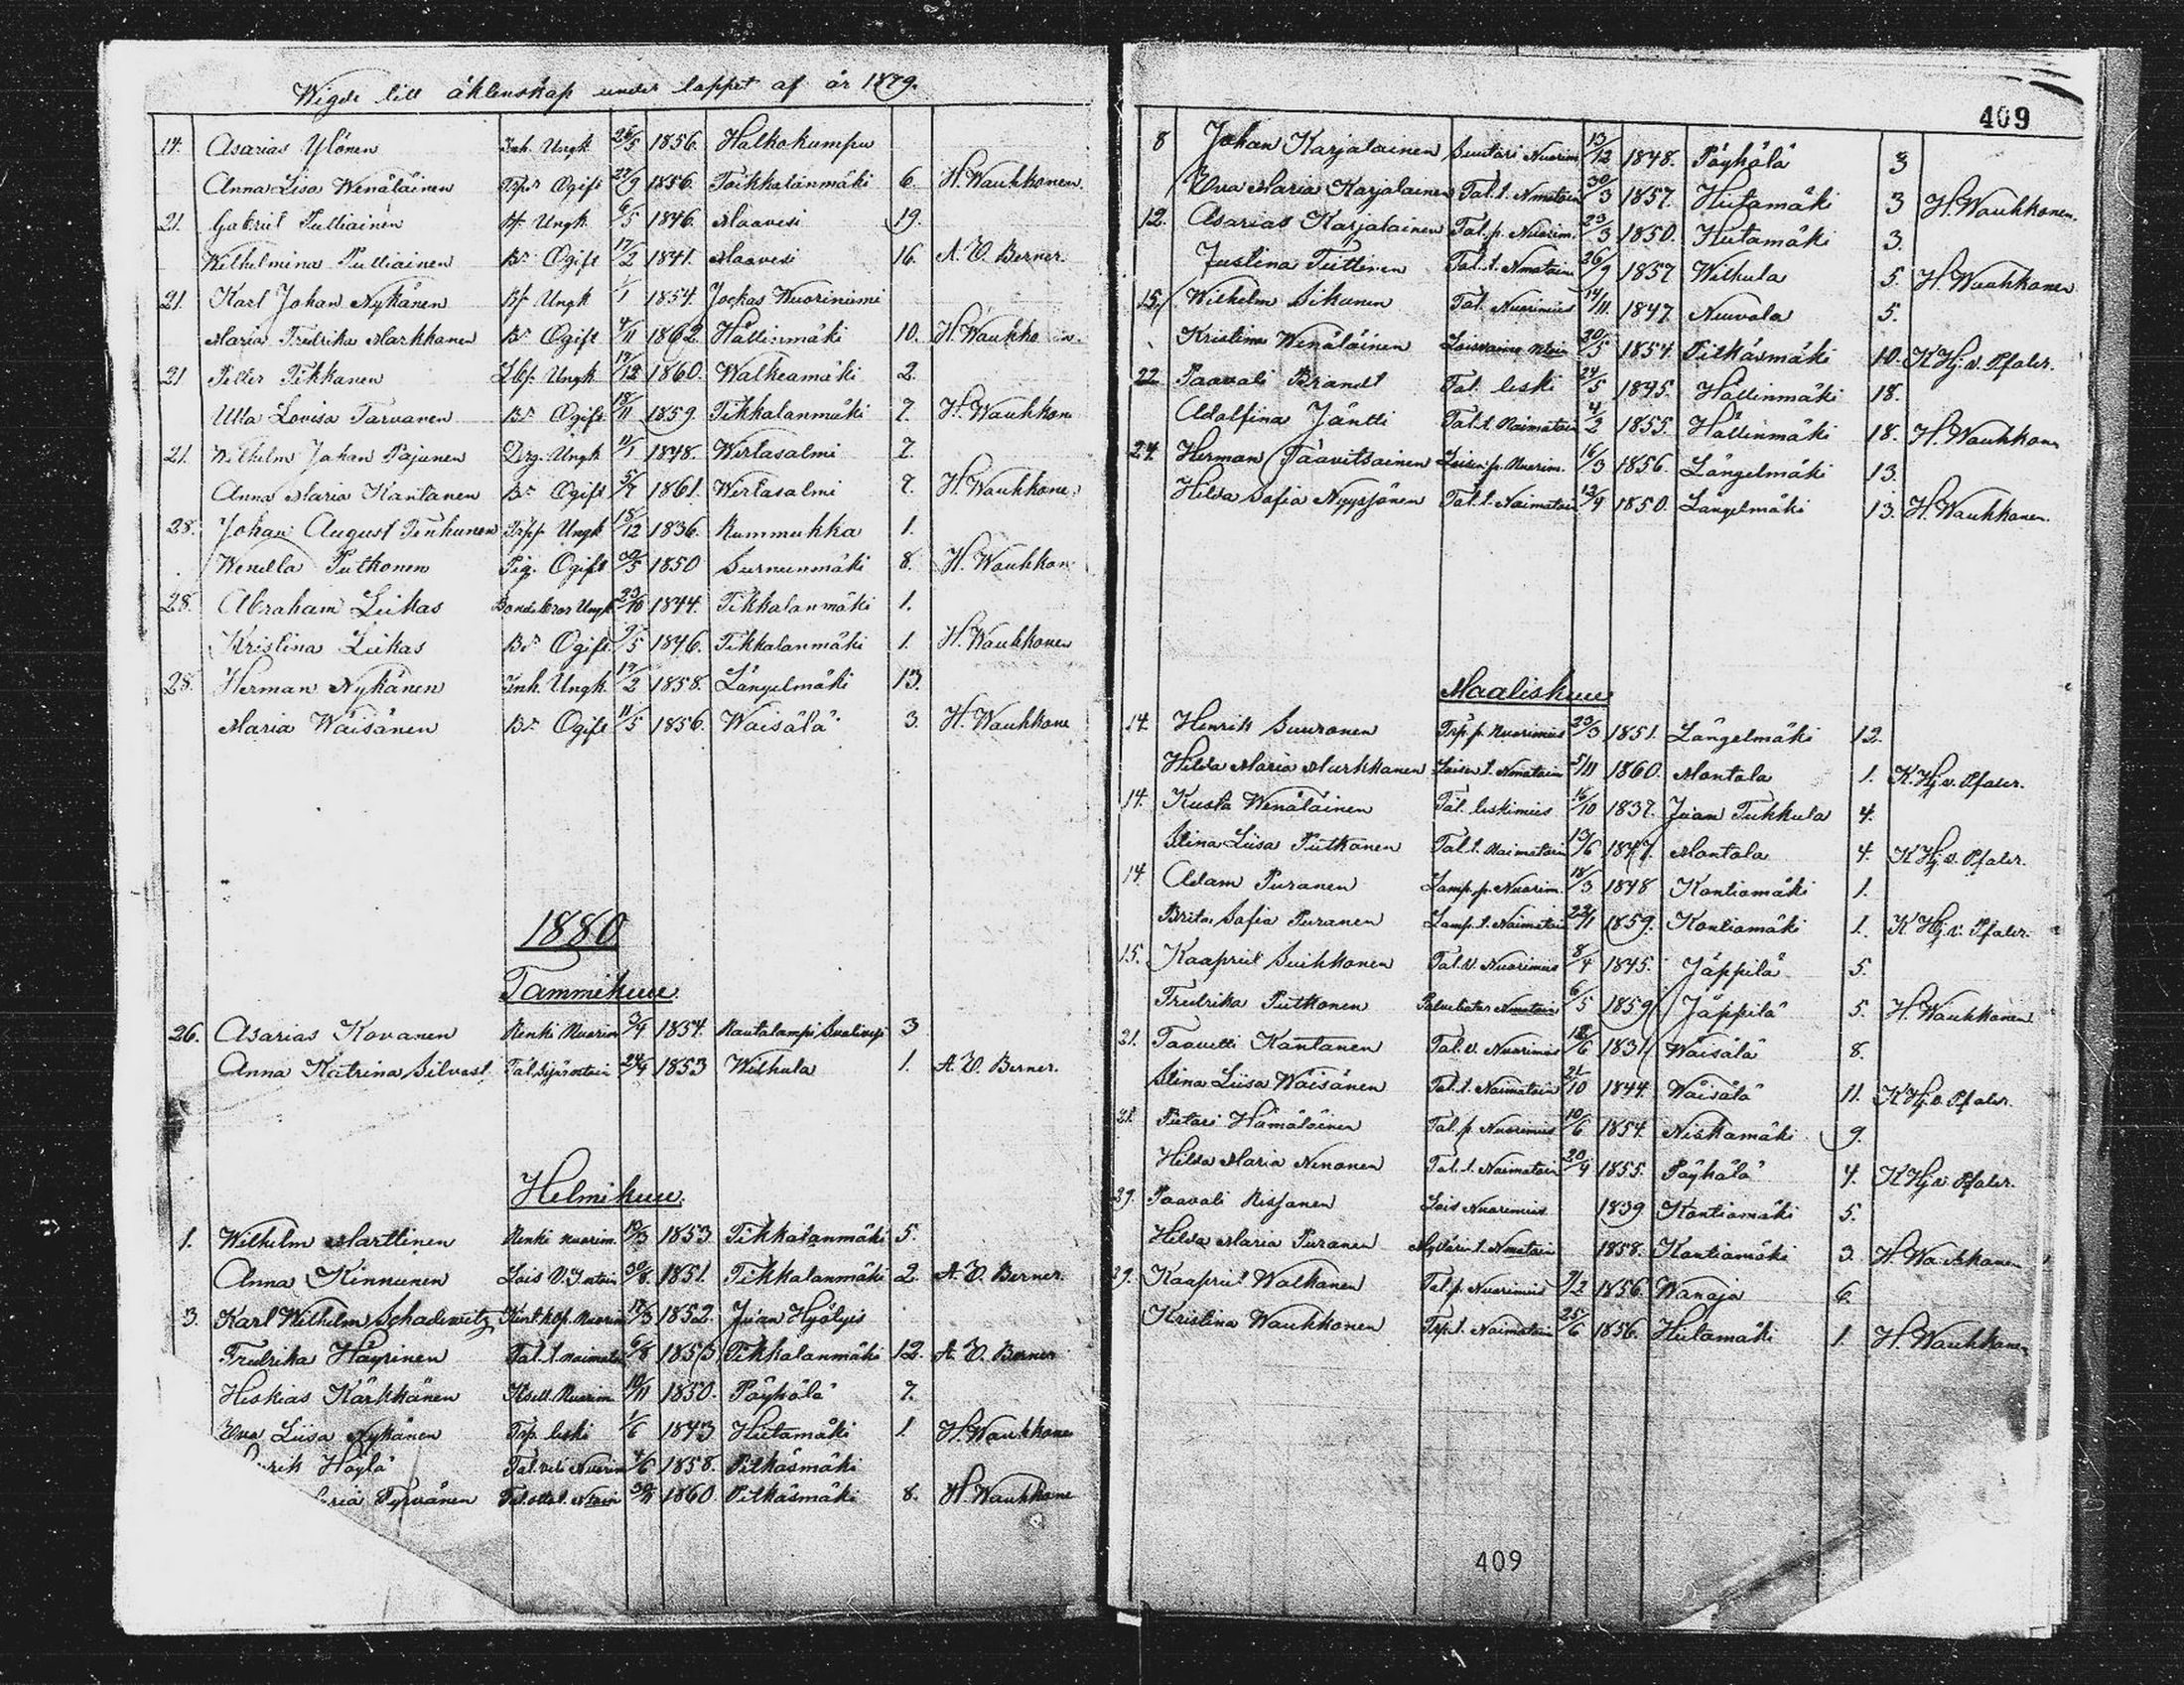 Wigde till äktenskap under loppet af år 1879.
14. Asarias Ylönen Inh. Ungk 26/5 1856. Halkokumpu
Anna Lisa Wenäläinen Trpdr Ogift 27/9 1856. Toikkalanmäki 6. H. Wauhkonen.
21. Gabriel Pulliainen Bf. Ungk 6/5 1846. Maavesi 19.
Wilhelmina Pulliainen Bd. Ogift 17/2 1841. Maavesi 16. A. W. Berner.
21. Karl Johan Nykänen Bf. Ungk 1/1 1854. Jockas Wuoriniemi
Maria Fredrika Markkanen Bd. Ogift 4/11 1862. Hällinmäki 10. H. Wauhkonen.
21 Petter Pikkanen Ungk 17/12 1860. Walkeamäki 2.
Ulla Lovisa Tarvanen Bd. Ogift 18/11 1859. Tikkalanmäki 7. H. Wauhkone
21. Wilhelm Johan Pajunen Drg. Ungk 11/1 1848. Wirtasalmi 7.
Anna Maria Kantanen Bd. Ogift 5/7 1861. Wirtasalmi 7. H. Wauhkone
28. Johan August Tenhunen Trpf. Ungk 18/12 1836. Rummukka 1.
Wendla Putkonen Pig. Ogift 30/5 1850 Surnunmäki 8. H. Wauhkon
28. Abraham Liikas Bondebror Ungk 23/10 1844. Tikkalanmäki 1.
Kristina Liikas Bd. Ogift 1846. Tikkalanmäki 1. H. Wauhkonen
28. Herman Nykänen Inh. Ungk. 17/2 1858. Längelmäki 13.
Maria Wäisänen Bd. Ogift 11/5 1856. Waisälä 3. H. Wauhkone
1880
Tammikuu.
26. Asarias Kovanen Renki Nuorim 3/9 1854. Rautalampi 3
Anna Katrina Silvast 24/9 1853 Wilhula 1. A. W. Berner.
Helmikuu.
1. Wilhelm Marttinen Renki nuorim. 19/3 1853 Tikkalanmäki 5.
Anna Kinnunen Lois 30/8 1851. Tikkalanmäki 2. A. W. Berner.
3. Karl Wilhelm Schadewitz Nuorim 17/3 1852. Juan Hyölyis
Fredrika Häyrinen Tal. t. naimato 6/8 1853 Tikkalanmäki 12. A. W. Berner
Hiskias Kärkkänen Itsell. Nuorim 10/11 1850. Pöyhölä 7.
Eva Liisa Nykänen Trp. leski 1/6 1843 Hiitamäki 1. H. Wauhkone
rik Höylä Tal. veli Nuorim 4/6 1858. Pitkäsmäki
aria Tyrvänen 1860 Pitkäsmäki 8. H. Wauhkone
409
8 Johan Karjalainen Suutari Nuorim 13/12 1848. Pöyhölä 3
Eva Maria Karjalainen Tal. t. Nmatoin 30/3 1857. Hiitamäki 3 H. Wauhkonen.
12. Asarias Karjalainen Tal. p. Nuorim. 23/3 1850. Hiitamäki 3.
Justina Tiittinen Tal. t. Nmatoin 26/9 1857 Wilhula 5 H. Wauhkonen
15. Wilhelm Sikanen Tal. Nuorimies 14/11 1847 Neuvola 5.
Kristina Wenäläinen 20/5 1854. Pitkäsmäki 10. K Hj. v. Pfaler.
22 Paavali Brandt Tal. leski 24/5 1845. Hällinmäki 18.
Adolfina Jäntti Tal. t. Naimatoin 4/2 1855. Hällinmäki 18. H. Wauhkone
24. Herman Paavitsainen Loisen p. Nuorim. 16/3 1856. Längelmäki 13.
Hilda Sofia Nyyssönen Tal. t. Naimatoin 12/9 1850. Längelmäki 13. H. Wauhkonen.
Maaliskuu
14. Henrik Suuronen Trp. p. Nuorimies 23/3 1851. Längelmäki 12.
Hilda Maria Markkanen Loisen t. Nmatoin 5/11 1860. Montola 1. K. Hj. v. Pfaler.
14. Kusta Wenäläinen Tal. leskimies 16/10 1837. Juan Tukkula 4.
Stina Liisa Putkonen Tal. t. Naimatoin 13/6 1847. Montola 4. K Hj. v. Pfaler.
14 Adam Puranen Lamp. p. Nuorim. 18/3 1848 Kontiomäki 1.
Brita Sofia Puranen Lamp. t. Naimatoin 22/11 1859. Kontiomäki 1. K Hj. v. Pfaler.
15. Kaapriel Suihkonen Tal. v. Nuorimies 8/4 1845. Jäppilä 5.
Fredrika Putkonen Nmatoin 6/5 1859. Jäppilä 5. H. Wauhkonen
21. Taavetti Kantanen Tal. v. Nuorimies 18/6 1831. Wäisälä 8.
Stina Liisa Wäisänen Tal. t. Naimatoin 21/10 1844. Wäisälä 11. K Hj. v. Pfaler.
21. Pietari Hämäläinen Tal. p. Nuorimies 10/6 1854. Niskamäki 9.
Hilda Maria Ninonen Tal. t. Naimatoin 20/9 1855. Pöyhölä 4. K Hj. v. Pfaler.
29. Paavali Rissanen Lois Nuorimies 1839 Kontiomäki 5.
Hilda Maria Puranen Myllärin t. Nmatoin 1858. Kontiomäki 3. H. Wauhkonen
29. Kaapriel Walkonen Tal. p. Nuorimies 9/2 1856. Wanaja 6.
Kristina Wauhkonen Trp. t. Naimatoin 25/6 1856. Hiitamäki 1. H. Wauhkone
409